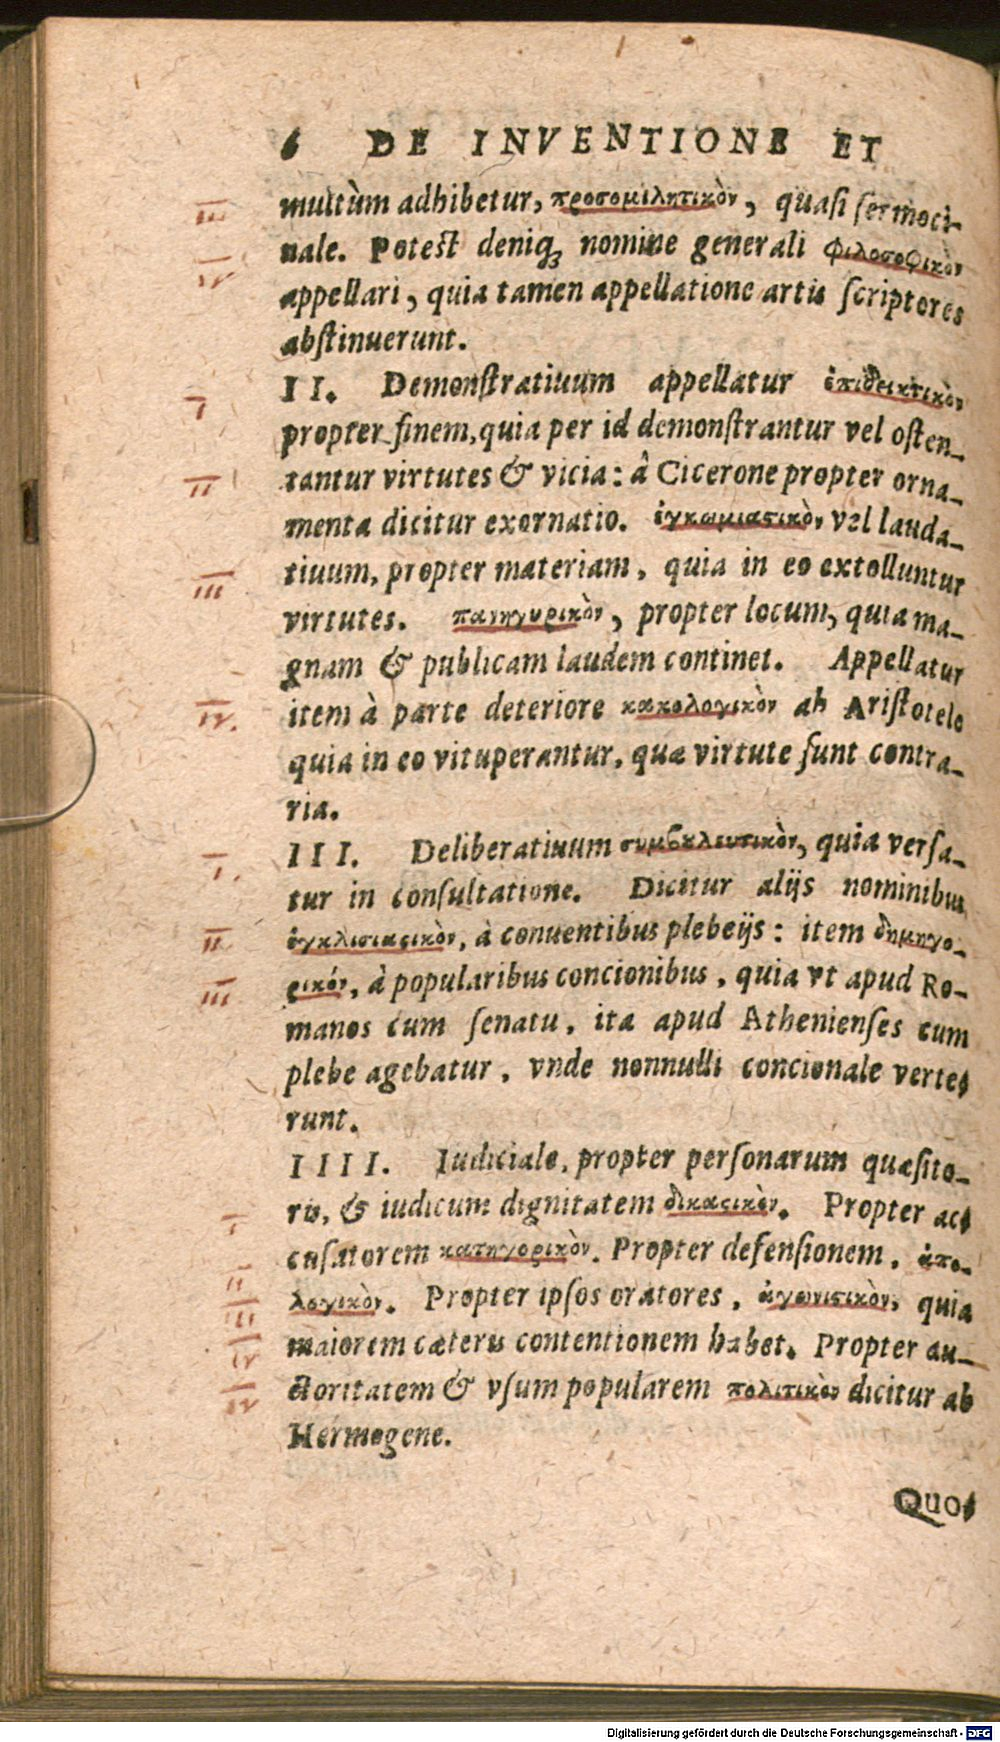 6 DE INVENTIONE ET
III
multùm adhibetur, προσομιλητικὸν, quasi sermoci-
IV
nale. Potest deniq; nomine generali φιλοσοφικὸν
appellari, quia tamen appellatione artis scriptores
abstinuerunt.
I
II. Demonstratiuum appellatur ἐπιδεικτικὸν
propter finem, quia per id demonstrantur vel osten-
II
tantur virtutes & vicia: à Cicerone propter orna-
menta dicitur exornatio. ἐγκωμιαϛικὸν vel lauda-
III
tiuum, propter materiam, quia in eo extolluntur
virtutes. πανηγυρικὸν, propter locum, quia ma-
gnam & publicam laudem continet. Appellatur
IV.
item à parte deteriore κακολογικὸν ab Aristotele
quia in eo vituperantur, quæ virtute sunt contra-
ria.
I.
III. Deliberatiuum συμβȣλευτικὸν, quia versa-
tur in consultatione. Dicitur alijs nominibus
II
ἐγκλισιαϛικὸν, à conuentibus plebeijs: item δημηγο-
III
ρικόν, à popularibus concionibus, quia vt apud Ro-
manos cum senatu, ita apud Athenienses cum
plebe agebatur, vnde nonnulli concionale verte-
runt.
IIII. Iudiciale, propter personarum quæsito-
I
ris, & iudicum dignitatem δικαϛικὸν. Propter ac-
cusatorem κατηγορικὸν. Propter defensionem, ἀπο-
II
III
λογικὸν. Propter ipsos oratores, ἀγωνιϛικὸν, quia
IV
maiorem cæteris contentionem habet. Propter au-
V
ctoritatem & vsum popularem πολιτικὸν dicitur ab
Hermogene.
Quo-
Digitalisierung gefördert durch die Deutsche Forschungsgemeinschaft - DFG